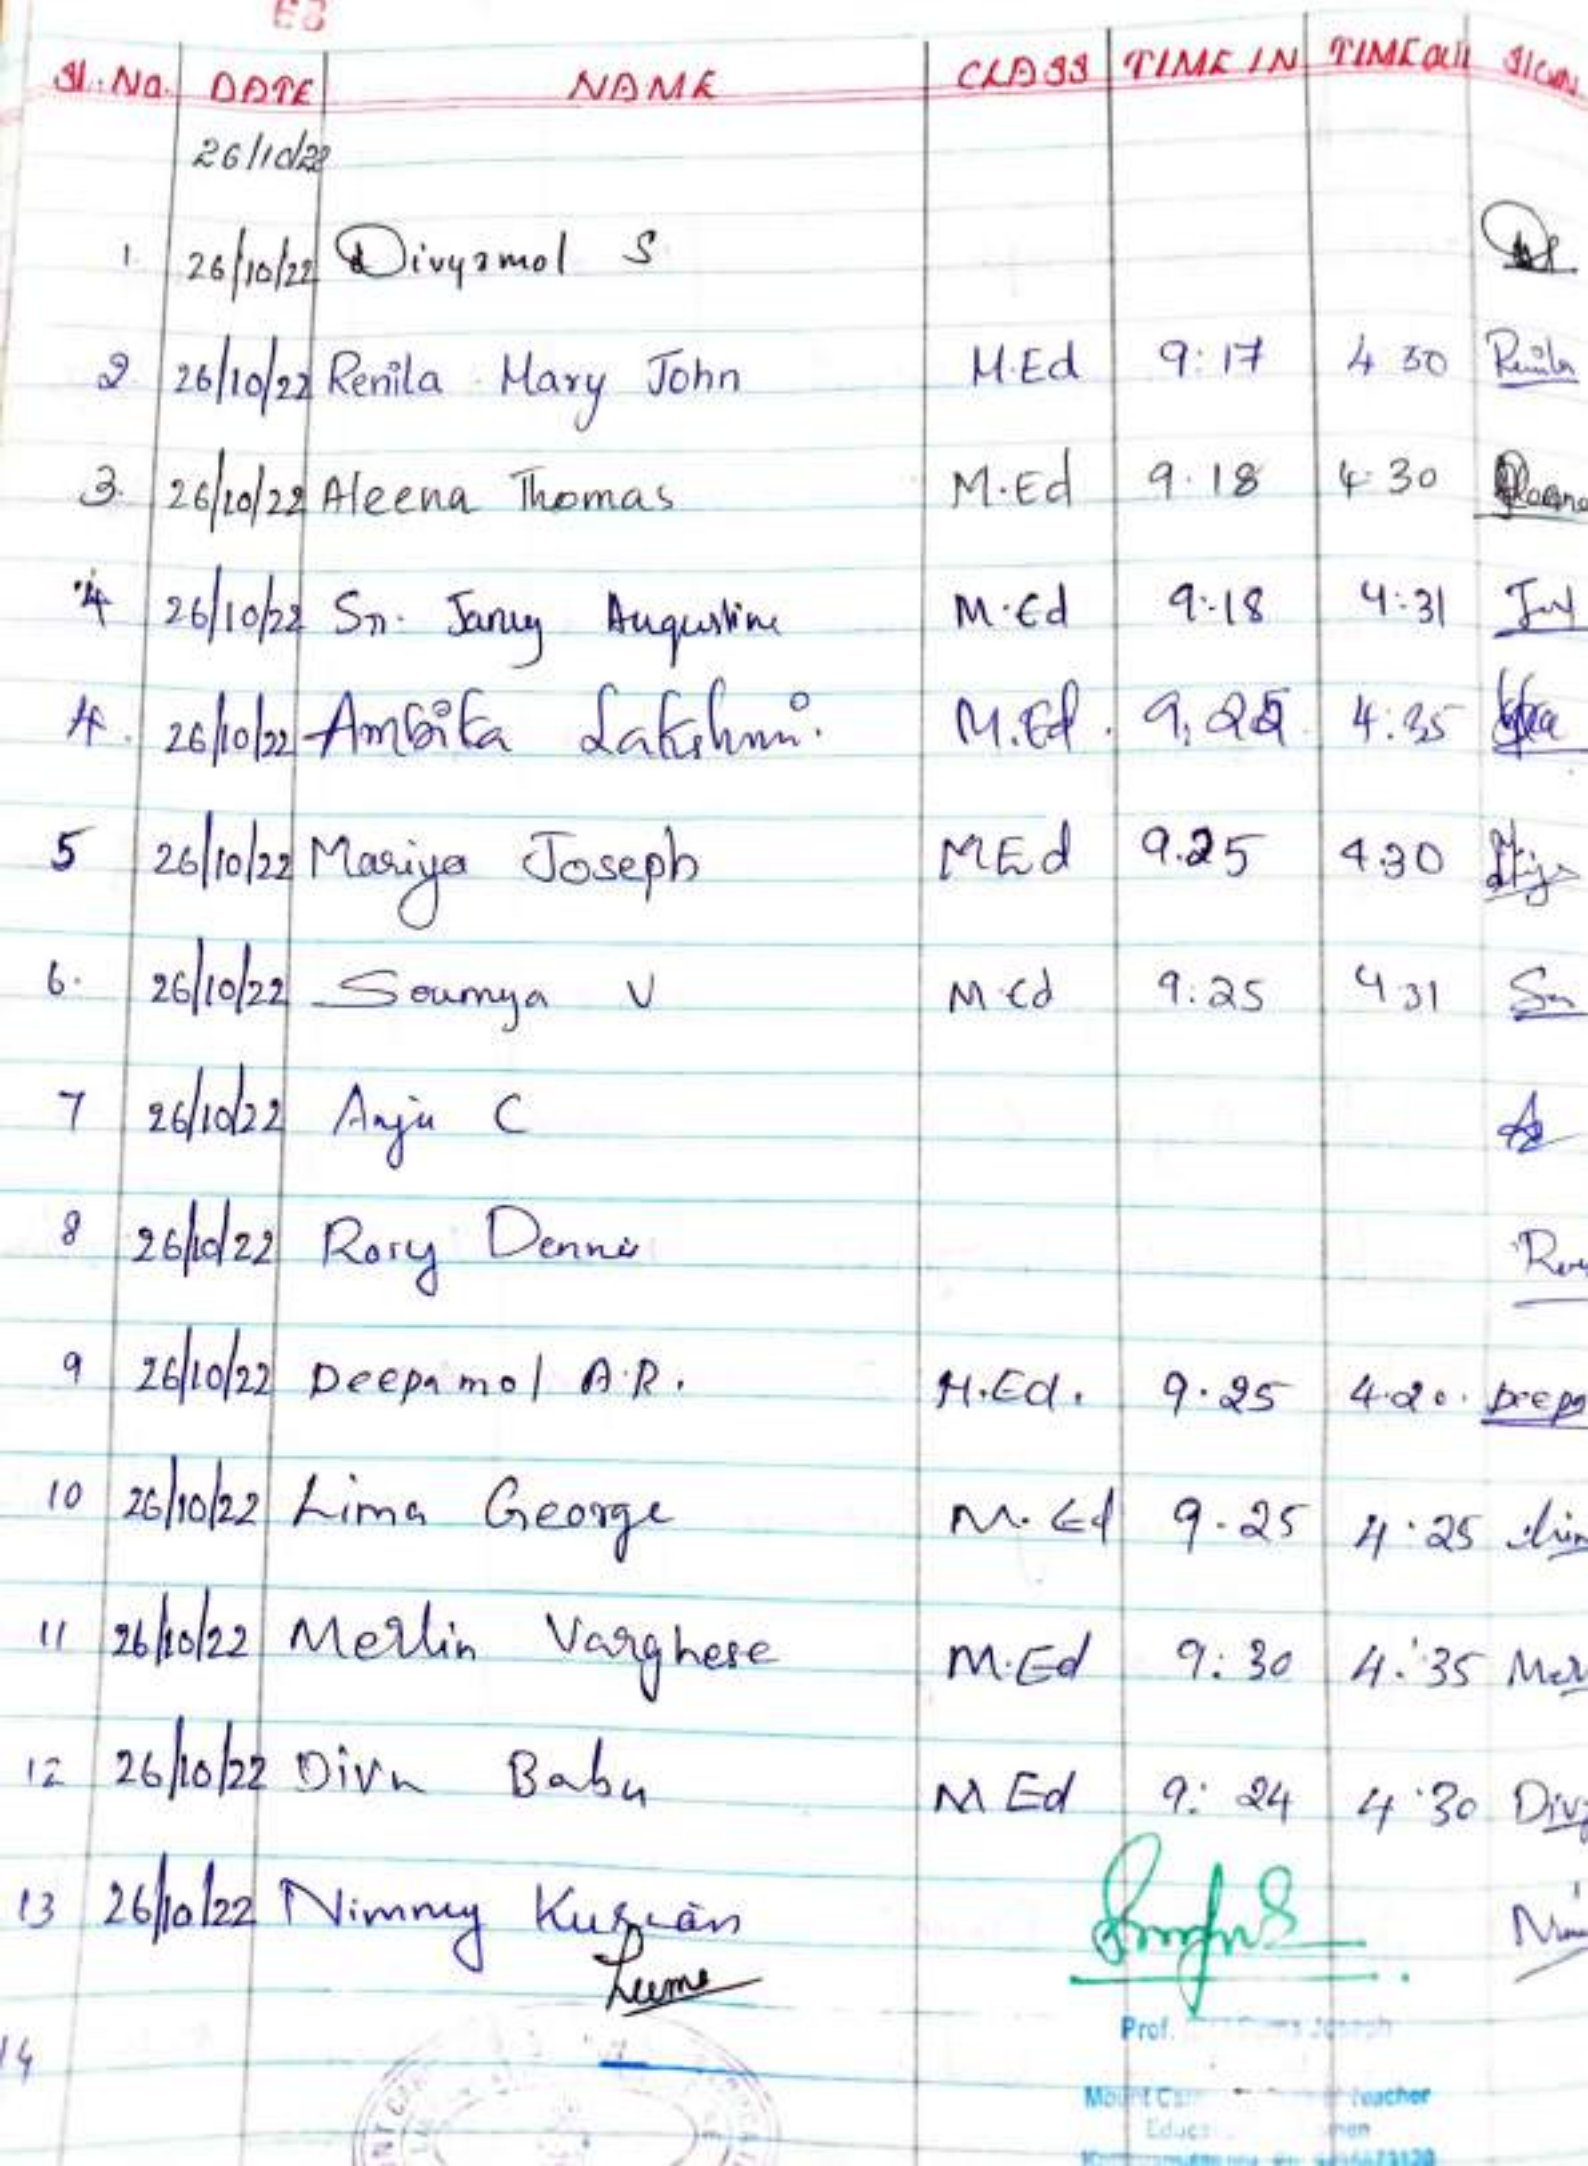 Sl. No. DATE NAME CLASS TIME IN TIME OUT SIGN.
26/10/22
1. 26/10/22 Divyamol S
2 26/10/22 Renila Mary John M.Ed 9:17 4 30 Renila
3. 26/10/22 Aleena Thomas M.Ed 9.18 4.30
4 26/10/22 Sr. Jancy Augustine M.Ed 9:18 4:31
4. 26/10/22 Ambika Lakshmi. M.Ed. 9.25 4:35
5 26/10/22 Mariya Joseph MEd 9.25 4.30
6. 26/10/22 Soumya V M.Ed 9:25 4 31
7 26/10/22 Anju C
8 26/10/22 Rosy Dennis
9 26/10/22 Deepamol A.R. M.Ed. 9.25 4.20. Deepa
10 26/10/22 Lima George M.Ed 9.25 4.25
11 26/10/22 Merlin Varghese M.Ed 9:30 4:35 Mer
12 26/10/22 Divya Babu M Ed 9:24 4:30 Divy
13 26/10/22 Nimmy Kurian
14
Prof. Joseph
Mount Teacher
Educ